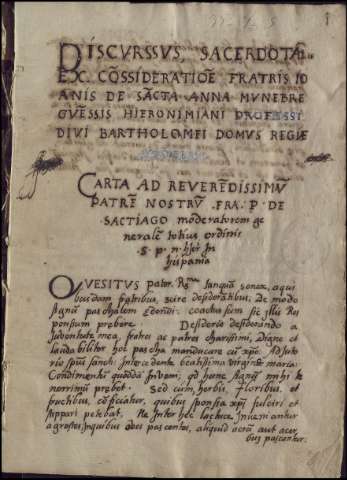 DISCVRSSVS, SACERDOTALIS
EX. CÕSSIDERATIOE FRATRIS IO
ANIS DE SÃCTA ANNA MVNEBRE
GVESSIS HIERONIMIANI PROFESSI
DIVI BARTHOLOMEI DOMVS REGIÆ
CARTA AD REVERẼDISSIMV̄
PATRẼ NOSTRV̄ .FRA. P. DE
SACTIAGO mõderatorem ge
neralẽ totius ordinis
.S. P. n. hjer in
hispania
QVESITVS pater. Rme tanquã senex, a qui
busdam fratribus, scire desiderãtibus, De modo
agnum paschalem edendi: coactus sum sic illis Res
ponsum prebere. Desiderio desiderando a
Iubentute mea, fratres ac patres charissimi, Digne et
laudabiliter hoc pascha manducare cũ xpo: Adiuto
rio spus sancti Intercedente beatissima virgine maria:
Condimentũ quoddã Inveni, qd hunc agnum mihi
prebet. Sed cum, herbis, floribus, et
fructibus, cõficiatur, quibus sponsa xpi fulciri et
stippari petebat, Ne Inter hec lactuce, Inveniantur
agrestes, Inquibus oves pascentes, aliquid acrũ aut acer
bus pascentur.